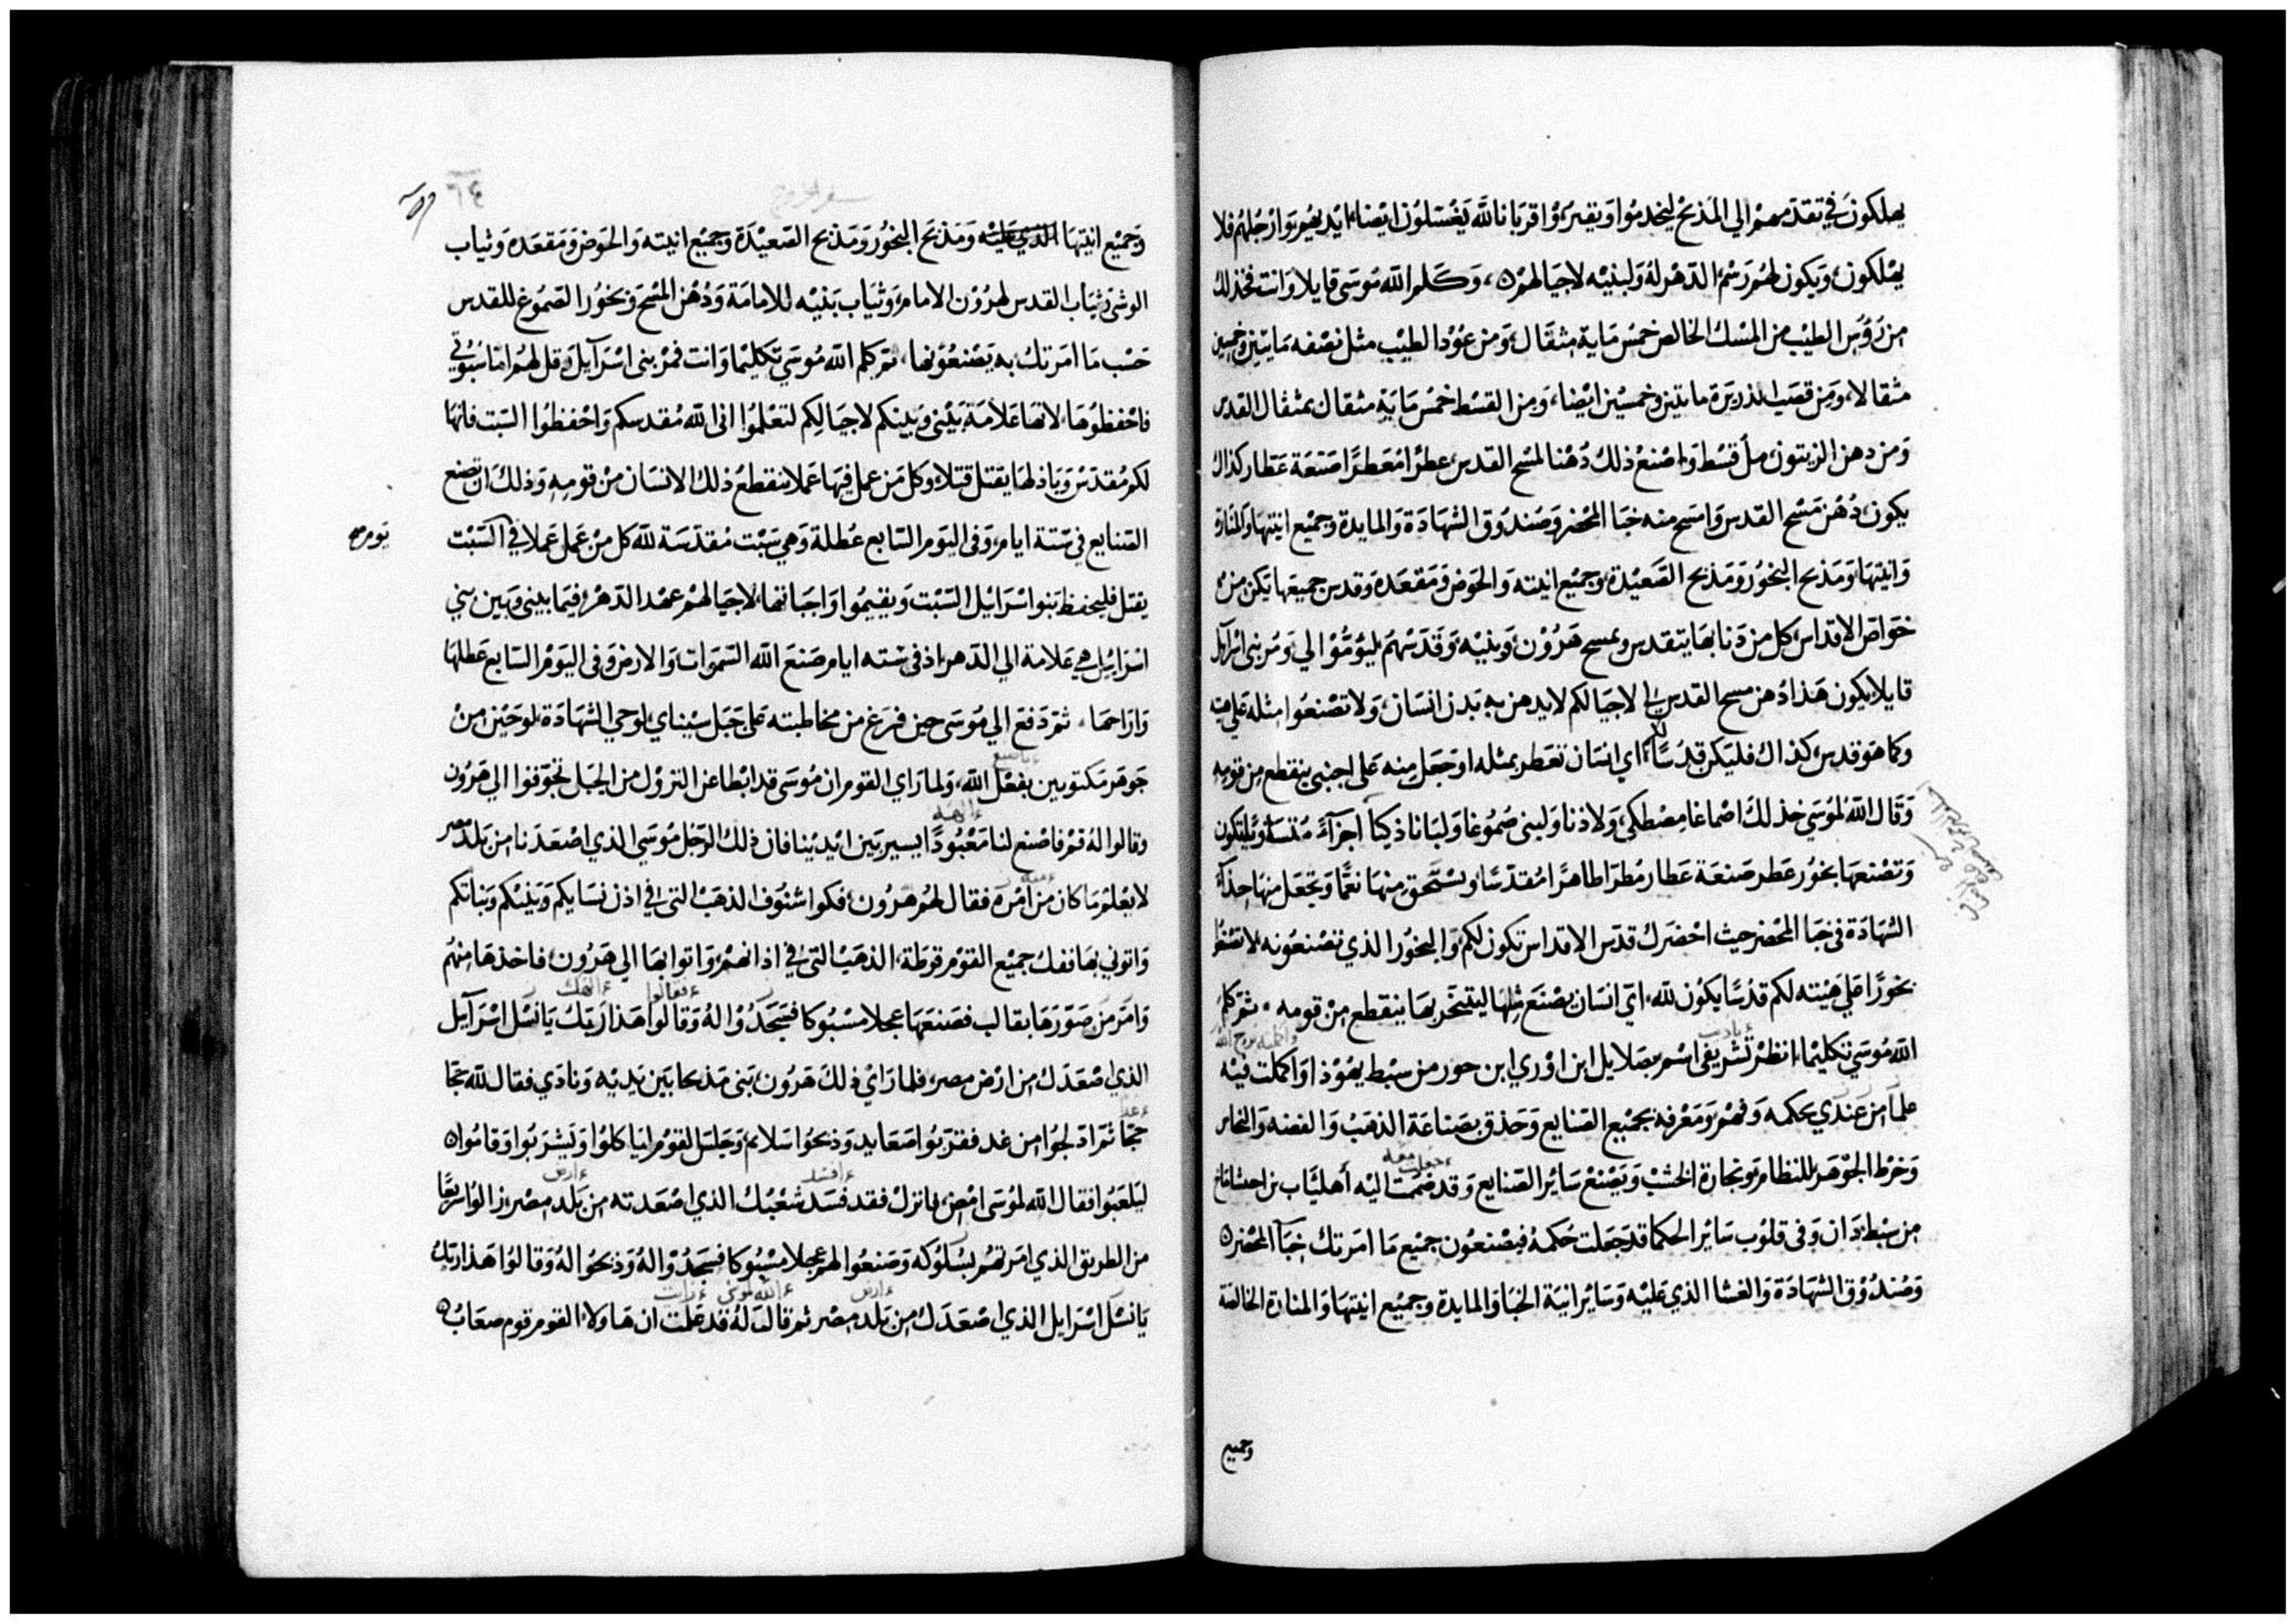 يهلكون في تقدمهم الي المذبح ليخدموا ويقتروا قربانا لله يغسلون ايضا ايديهم وارجلهم فلا
يهلكون ويكون لهم رسم الدهر له ولبنيه لاجيالهم وكلم الله موسى قايلا وانت فخذ لك
من رؤس الطيب من المسك الخالص خمس ماية مثقال ومن عود الطيب مثل نصفه مايتين وخمسين
مثقالا ومن قصب الذريرة مايتين وخمسين ايضا ومن القسط خمس ماية مثقال بمثقال القدس
ومن دهن الزيتون مل قسط واصنع ذلك دهنا لمسح القدس عطرا معطرا صنعة عطار كذاك
يكون دهن مسح القدس وامسح منه خبا المحضر وصندوق الشهادة والمايدة وجميع انيتها والمنارة
وانيتها ومذبح البخور ومذبح الصعيدة وجميع انيته والحوض ومقعده وقدس جميعها يكن من
خواص الاقداس كل من دنا بها يتقدس وبمسح هرون وبنيه وقدسهم ليؤموا لي ومر بني اسرآيل
قايلا يكون هذا دهن مسح القدس لي لاجيالكم لا يدهن به بدن انسان ولا تصنعوا مثله على هيته
وكما هو قدس كذاك فليكن قدسا لكم اي انسان تعطر بمثله او جعل منه على اجنبي ينقطع من قومه
وقال الله لموسى خذ لك اصماغا مصطكي ولاذنا ولبنى صموغا ولبانا ذكيا اجزآء متساوية تكون
وتصنعها بخور عطر صنعة عطار مطرا طاهرا مقدسا وتسحق منها نعما وتجعل منها حذآء
الشهادة في خبا المحضر حيث احضرك قدس الاقداس تكون لكم والبخور الذي تصنعونه لا تصنعوا
بخورا على هيته لكم قدسا يكون لله اي انسان يصنع مثلها ليتبخر بها ينقطع من قومه ثم كلم
الله موسى تكليما انظر تشريفي اسم بصلايل ابن اوري ابن حور من سبط يهوذا واكملت فيه
علما من عندي بحكمه وفهم ومعرفه بجميع الصنايع وحذق بصناعة الذهب والفضه والنحاس
وخرط الجوهر للنظام ونجارة الخشب ويصنع ساير الصنايع وقد ضممت اليه أهلياب بن احيساماخ
من سبط دان وفي قلوب ساير الحكما قد جعلت حكمة فيصنعون جميع ما امرتك خبآ المحضر
وصندوق الشهادة والغشا الذي عليه وساير انية الخبا والمايدة وجميع انيتها والمنارة الخالصة
وجميع
سفر الخروج
٦٤
وجميع انيتها الذي عليه ومذبح البخور ومذبح الصعيدة وجميع انيته والحوض ومقعده وثياب
الوشى وثياب القدس لهرون الامام وثياب بنيه للامامة ودهن المسح وبخور الصموغ للقدس
حسب ما امرتك به يصنعونها ثم كلم الله موسى تكليما وانت فمر بنى اسرآيل وقل لهم اما سبوتي
فاحفظوها لانها علامة بيني وبينكم لاجيالكم لتعلموا اني الله مقدسكم واحفظوا السبت فانها
لكم مقدس وباذلها يقتل قتلا وكل من عمل فيها عملا ينقطع ذلك الانسان من قومه وذلك ان تصنع
الصنايع في ستة ايام وفي اليوم السابع عطلة وهي سبت مقدسة لله كل من عمل عملا في السبت
يوم
يقتل فليحفظ بنو اسرايل السبت ويقيموا واجباتها لاجيالهم عهد الدهر فيما بيني وبين بني
اسرايل هي علامة الي الدهر اذ في سته ايام صنع الله السموات والارض وفي اليوم السابع عطلها
واراحها ثم دفع الي موسى حين فرغ من مخاطبته على جبل سيناي لوحي الشهادة لوحين من
باصبع
جوهر مكتوبين بفعل الله ولما راي القوم ان موسى قد ابطا عن النزول من الجبل تجوقوا الي هرون
الهه
وقالوا له قم فاصنع لنا معبودا يسير بين ايدينا فان ذلك الرجل موسى الذي اصعدنا من بلد مصر
لا نعلم ما كان من امره فقال لهم هرون فكوا شنوف الذهب التي في اذن نسايكم وبنيكم وبناتكم
واتوني بها ففك جميع القوم قرطة الذهب التي في اذانهم واتوا بها الي هرون فاخذها منهم
فقالوا الهك
وامر من صورها بقالب فصنعها عجلا مسبوكا فسجدوا له وقالوا هذا ربك يا نسل اسرآيل
الذي اصعدك من ارض مصر فلما راي ذلك هرون بني مذبحا بين يديه ونادي فقال لله حجا
غدا
حجا ثم ادلجوا من غد فقربوا صعايد وذبحوا سلايم وجلس القوم لياكلوا وليشربوا وقاموا
افسد ارض
ليلعبوا فقال الله لموسى امض انزل فقد فسد شعبك الذي اصعدته من بلد مصر زالوا سريعا
من الطريق الذي امرتهم بسلوكه وصنعوا لهم عجلا مسبوكا فسجدوا له وذبحوا له وقالوا هذا ربك
ارض الله لموسى رايت
يا نسل اسرايل الذي اصعدك من بلد مصر ثم قال له قد علمت ان هاولاء القوم قوم صعاب